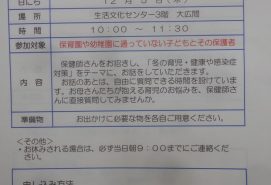 日にち 12月5日(木)
場所 生活文化センター3階 大広間
時間 10:00 ～ 11:30
参加対象 保育園や幼稚園に通っていない子どもとその保護者
保健師さんをお招きし、「冬の育児・健康や感染症
対策」をテーマに、お話をしていただきます。
内容 お話のあとは、自由に質問できる時間を設けていま
す。お母さんたちが抱える育児のお悩みを、保健師さ
んに直接質問してみませんか。
準備物 お出かけに必要な物を各自ご用意ください。
<その他>
・お休みされる場合は、必ず当日朝9:00までにご連絡く
ださい。
申し込み方法